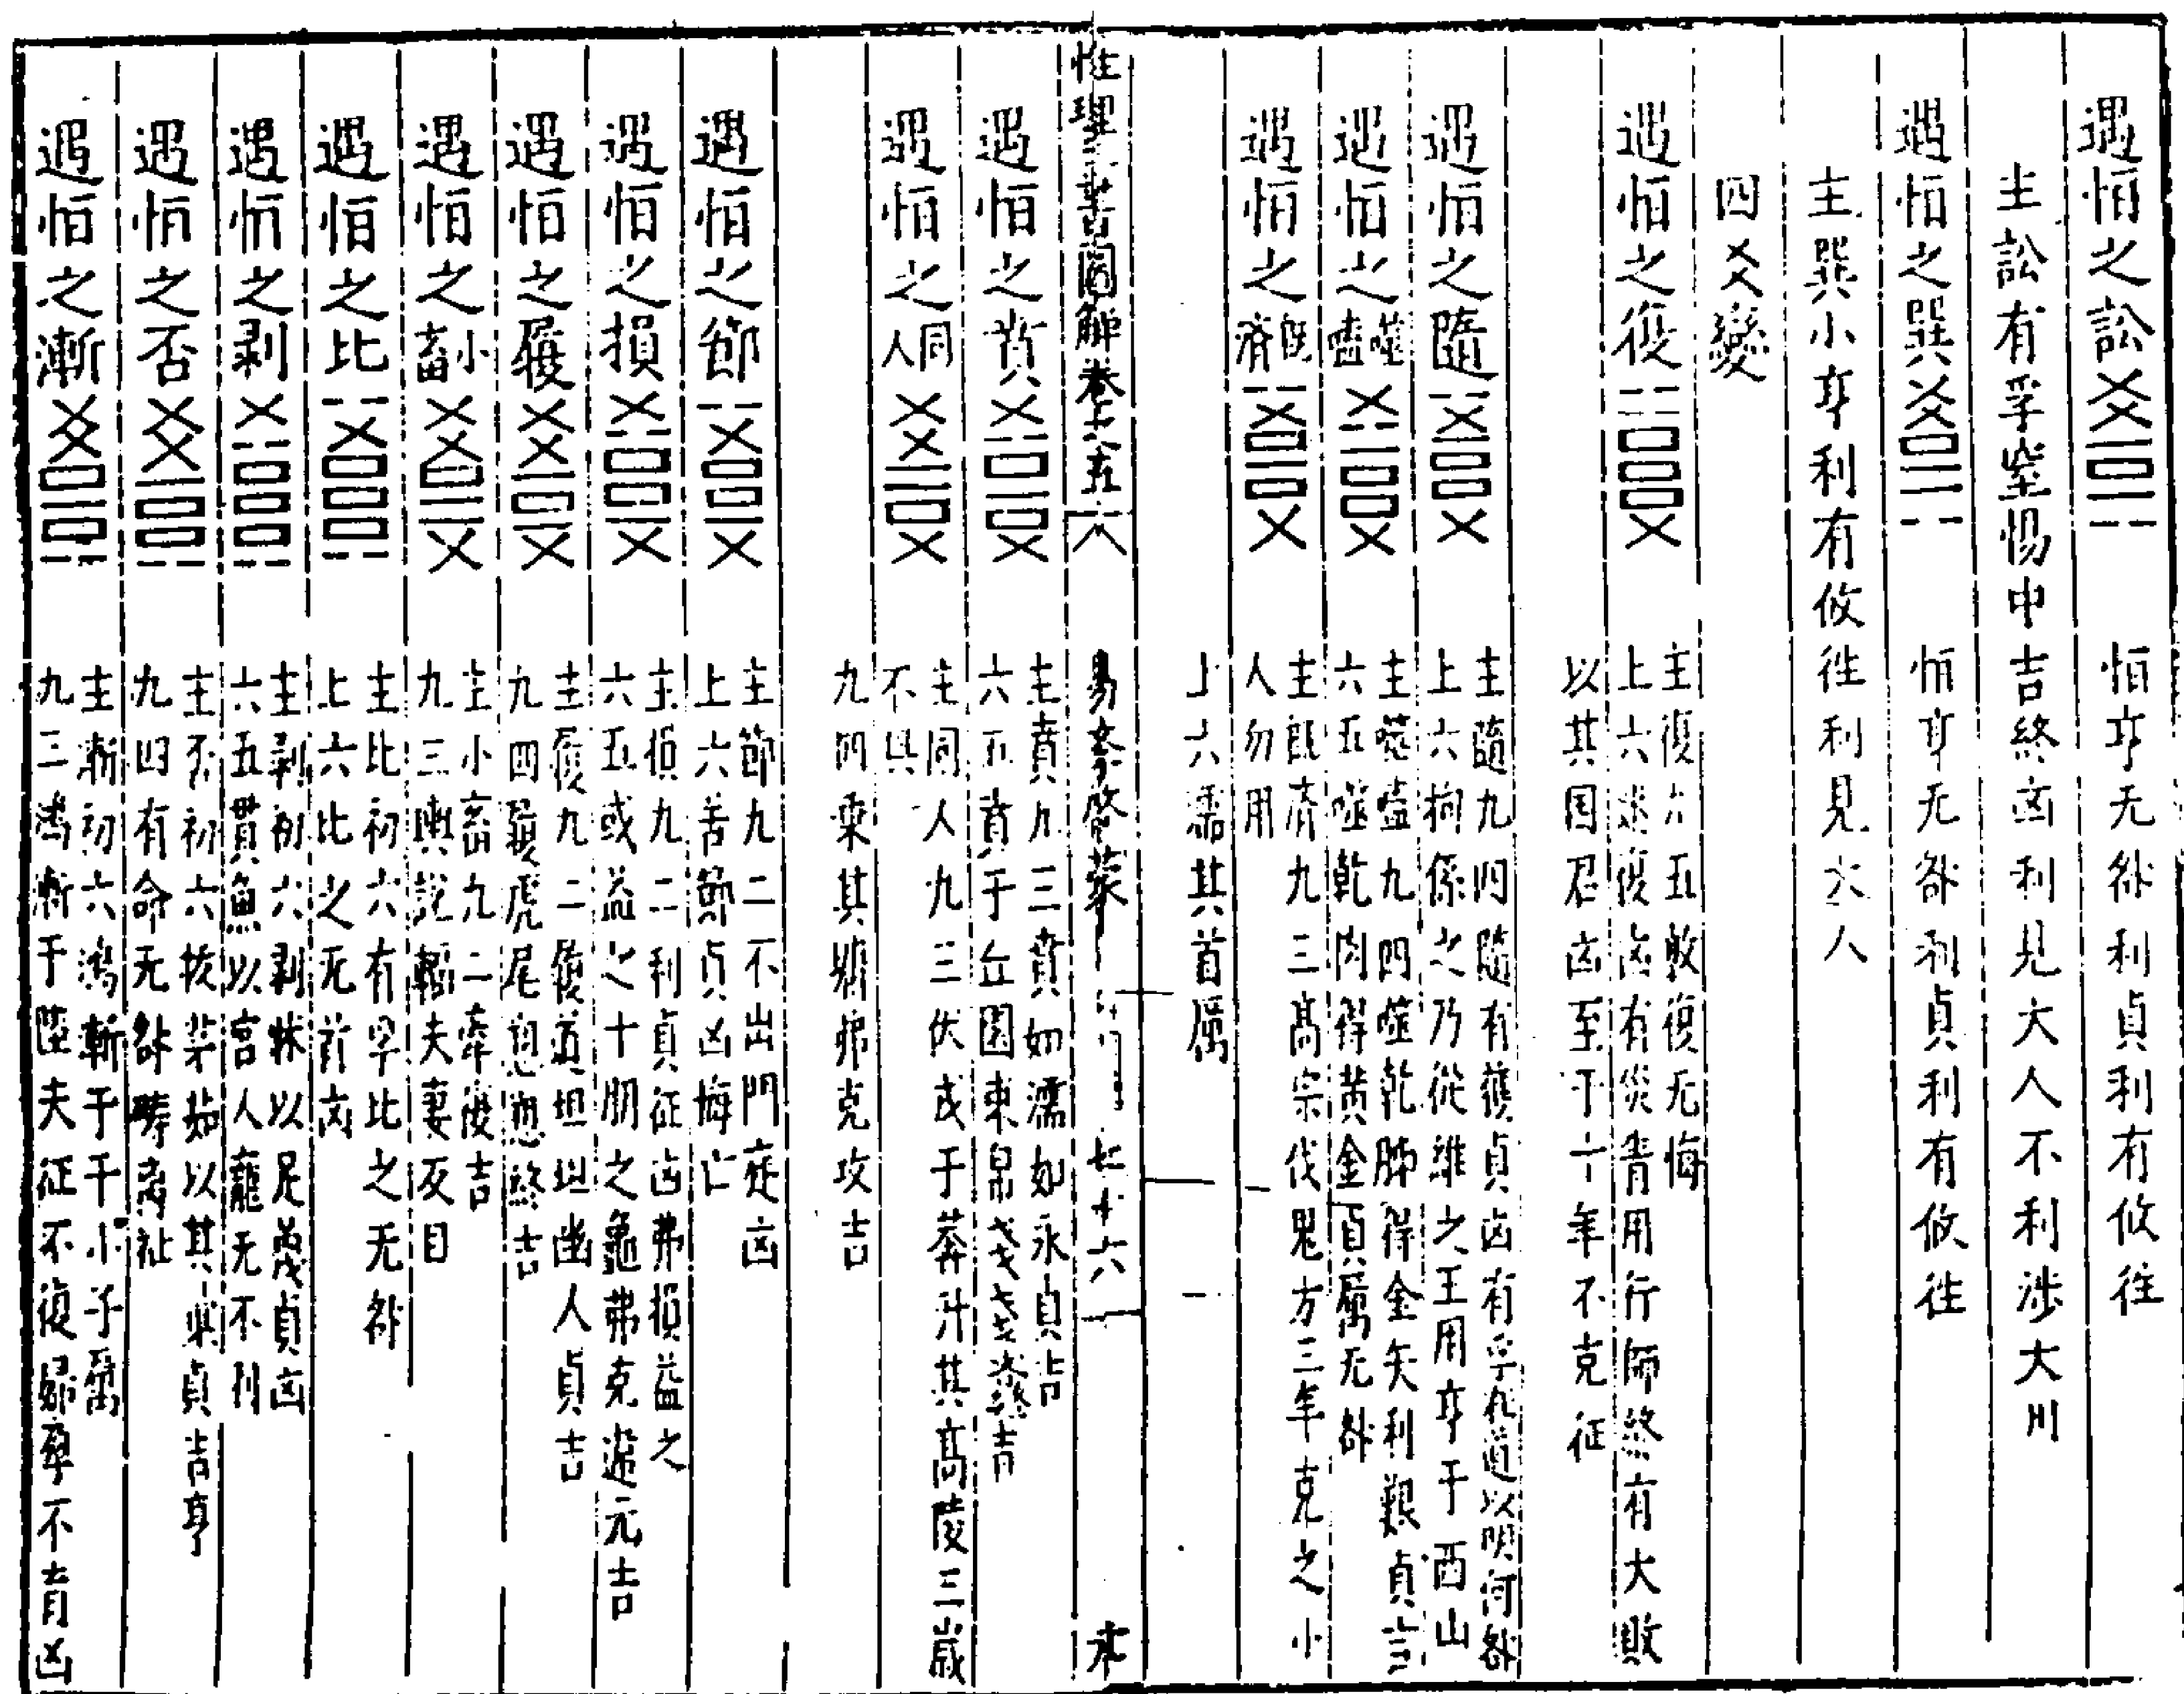 遇恒之訟　恒亨无咎利貞利有攸往
主訟有孚窒惕中吉終凶利見大人不利涉大川
遇恒之巽　恒亨无咎利貞利有攸往
主巽小亨利有攸往利見大人
四爻變
遇恒之復　主復六五敦復无悔
上六迷復凶有災眚用行師終有大敗
以其国君凶至于十年不克征
遇恒之隨　主隨九四隨有獲貞凶有孚在道以明何咎
上六拘係之乃從維之王用亨于西山
遇恒之噬嗑　主噬嗑九四噬乾胏得金矢利艱貞吉
六五噬乾肉得黃金貞厲无咎
遇恒之既濟　主既濟九三高宗伐鬼方三年克之小
人勿用
上六濡其首厲
性理羣書圖解卷之十五六　易學啓蒙　七十六
遇恒之賁　主賁九三賁如濡如永貞吉
六五賁于丘園束帛戔戔終吉
遇恒之同人　主同人九三伏戎于莽升其高陵三歲
不興
九四乘其墉弗克攻吉
遇恒之節　主節九二不出門庭凶
上六苦節貞凶悔亡
遇恒之損　主損九二利貞征凶弗損益之
六五或益之十朋之龜弗克違元吉
遇恒之履　主履九二履道坦坦幽人貞吉
九四履虎尾愬愬終吉
遇恒之小畜　主小畜九二牽復吉
九三輿說輻夫妻反目
遇恒之比　主比初六有孚比之无咎
上六比之无首凶
遇恒之剥　主剥初六剥牀以足蔑貞凶
六五貫魚以宮人寵无不利
遇恒之否　主否初六拔茅茹以其彙貞吉亨
九四有命无咎疇离祉
遇恒之漸　主漸初六鴻漸于干小子厲
九三鴻漸于陸夫征不復婦孕不育凶